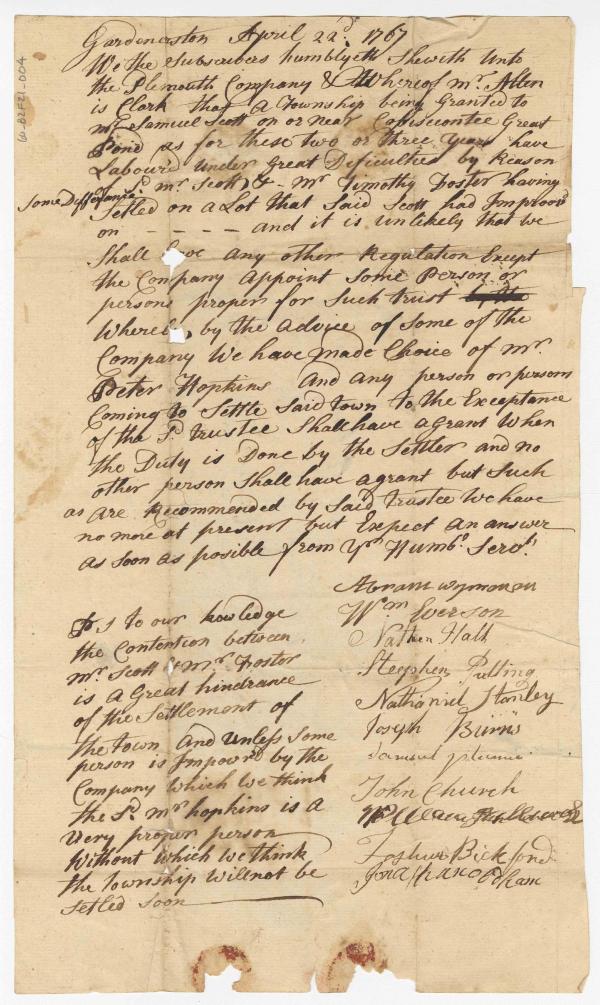 Gardenerston April 22d. 1767
We the Subscribers humblyeth Sheweth Unto
the Plemouth Company & Whereof mr. Allen
is Clark that a Township being Granted to
mr. Samuel Scott on or near Cobisecontee Great
Pond as for these two or three Years have
Labour'd under Great Dificulties by Reason
Some Difference Sd. mr. Scott & mr Timothy Foster having
Setled on a Lot that Said Scott had Improv'd
on - - - - and it is unlikely that we
Shall have any other Regulation Except
the Company Appoint Some Person or
persons proper for Such trust
Whereby by the advice of Some of the
Company We have made Choice of mr.
Peter Hopkins And any person or persons
Coming to Settle Said town to the Exceptance
of the Sd. trustee Shall have a grant When
the Duty is Done by the Settler and no
other person Shall have a grant but Such
as are Recommended by Said trustee We have
no more at present but Expect an answer
as Soon as posible from Yr. Humbl. Servts.
Abram wyman
Wm Everson
Nathen Hall
Steephen Pulling
Nathaniel Stanley
Joseph Burns
Samuel
John Church
Joshua Bickford
Jonathan
Ps to our knowledge
the Contention between
mr. Scott & mr. Foster
is a Great hindrance
of the Settlement of
the town And Unless Some
person is Impowrd by the
Company which we think
the Sd. mr hopkins is a
Very proper person
Without which we think
the township will not be
Setled Soon
60-B2F21-004